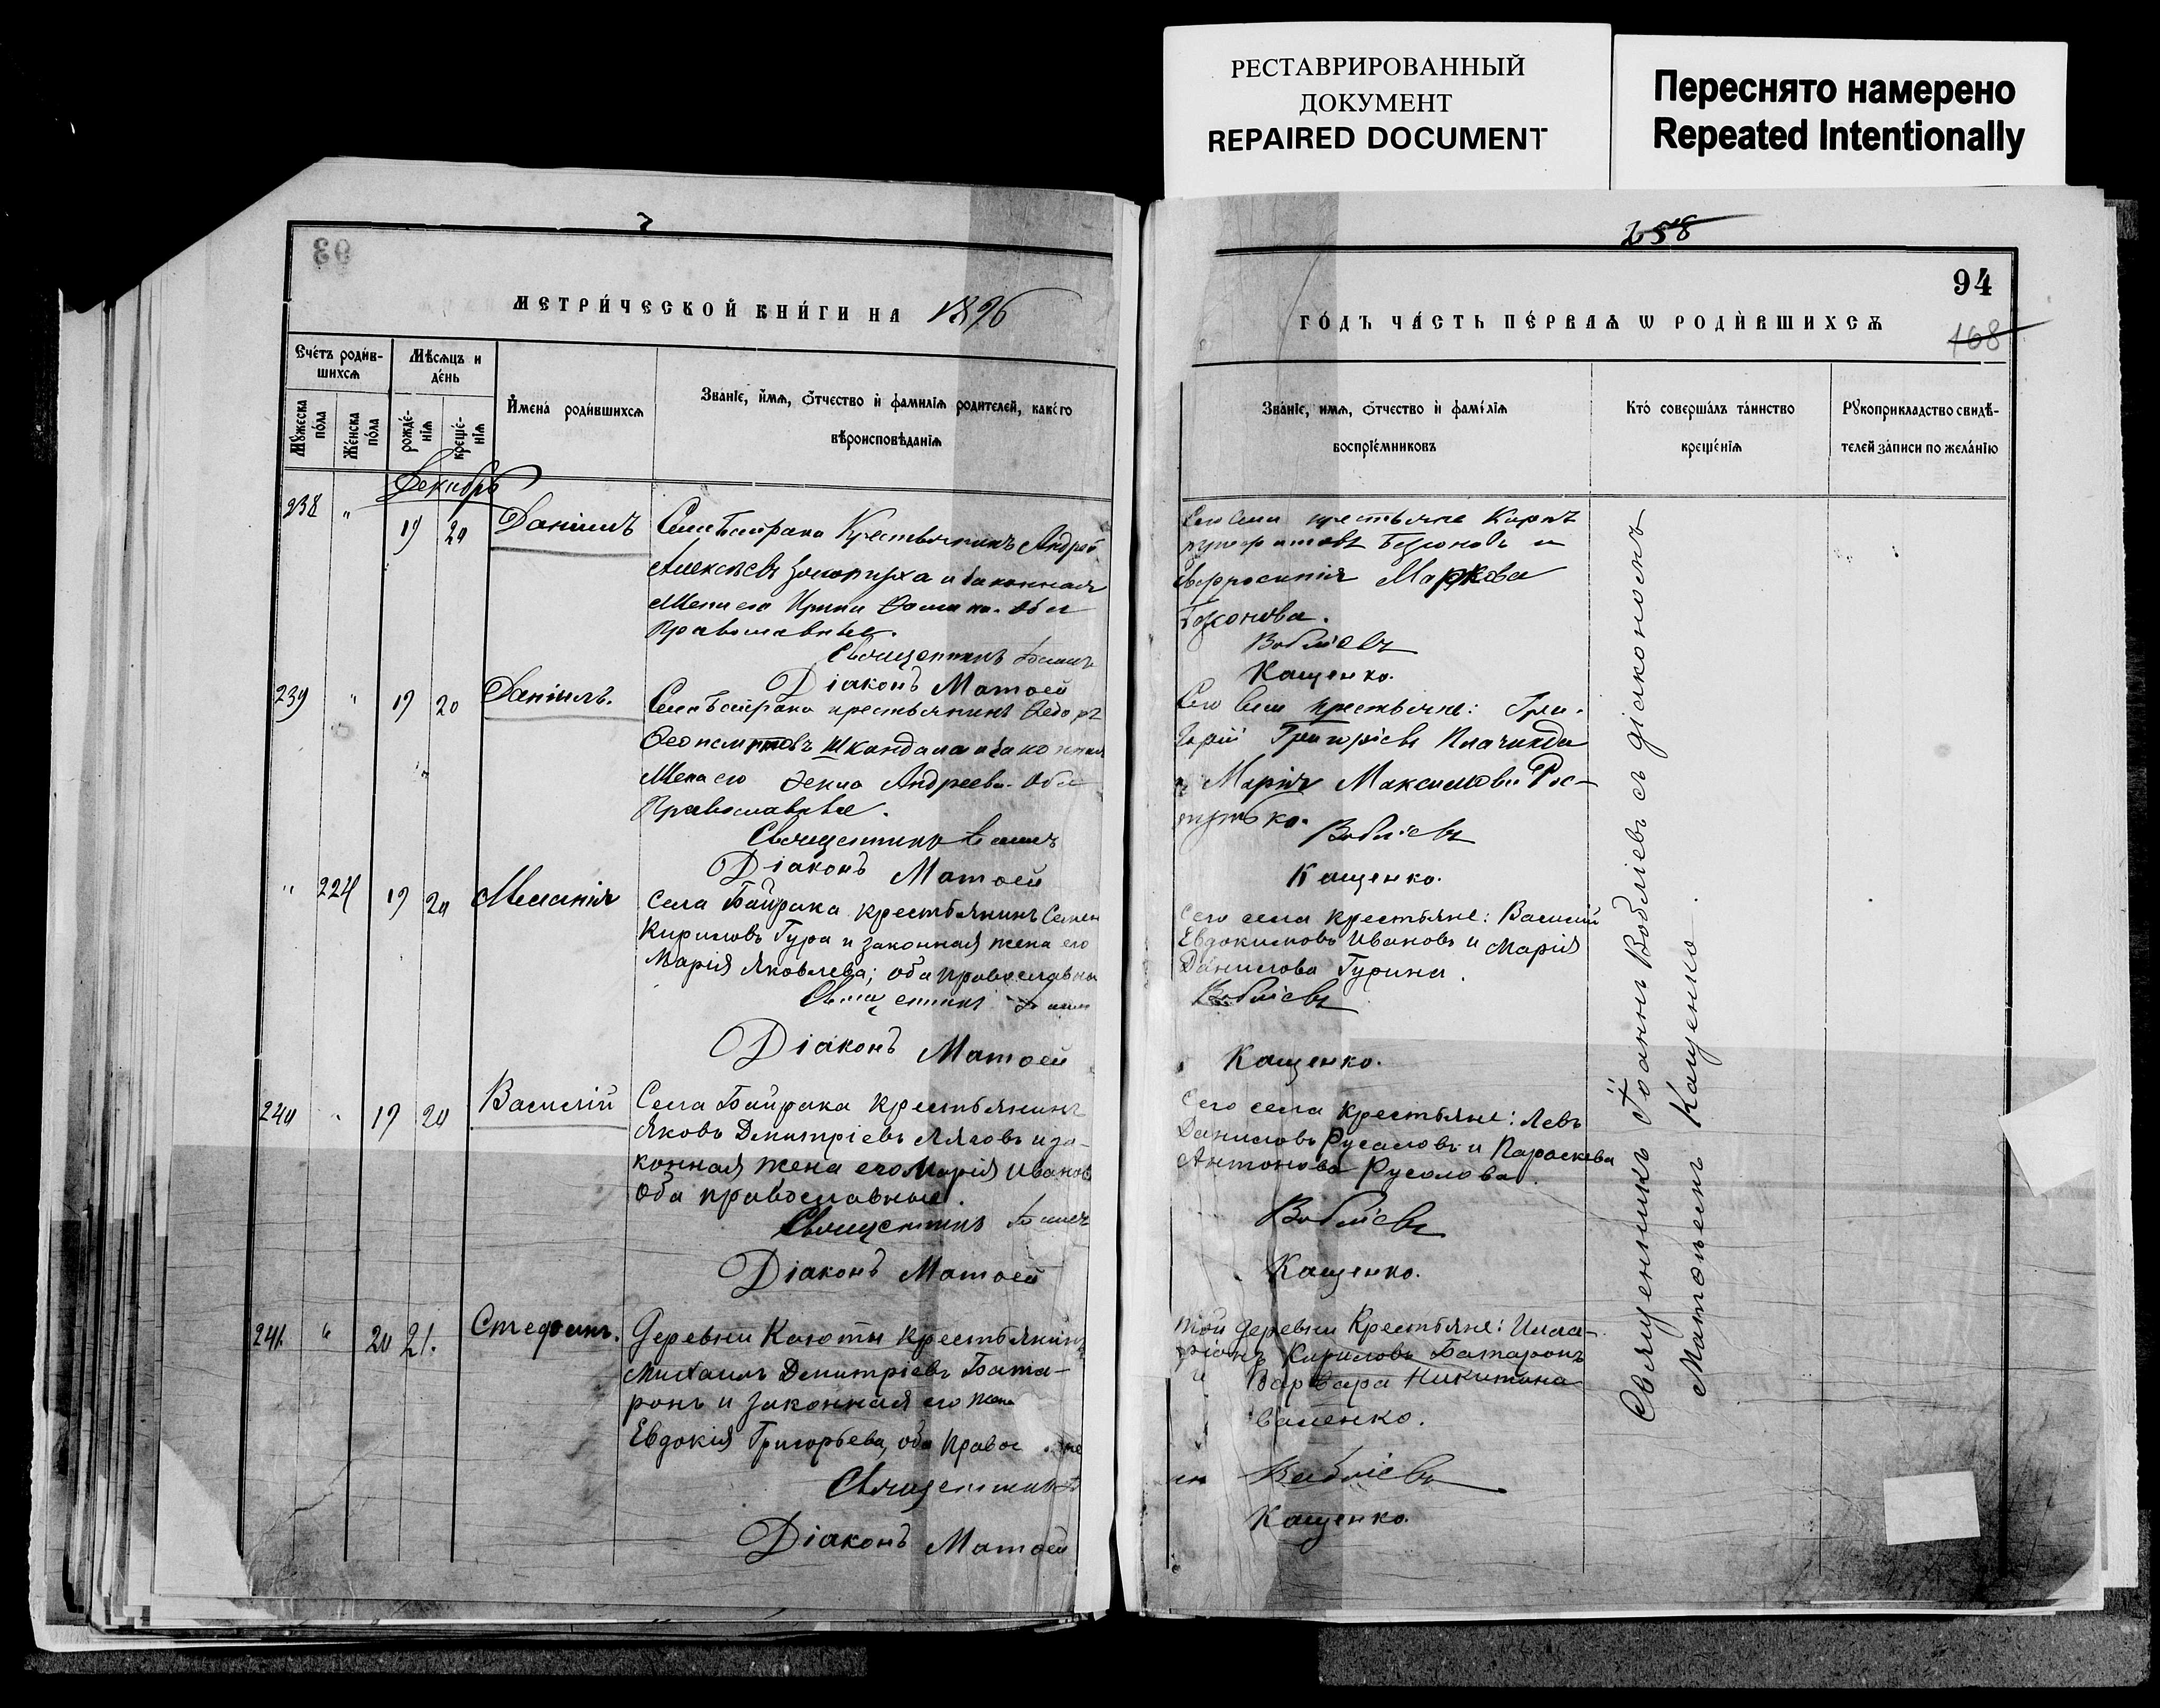 РЕСТАВРИРОВАННЫЙ
ДОКУМЕНТ
REPAIRED DOCUMENT
Переснято намерено
Repeated Intentionally
93
МЕТРИ́ЧЕСКОЙ КНИ́ГИ НА 1896
Счётъ роди́в-
шихсѧ
Мѣсѧцъ и
де́нь
Мꙋжеска
по́ла
Же́нска
по́ла
рожде́-
нїѧ
креще́-
нїѧ
И҆мена̀ роди́вшихсѧ
Зва́нїе, и҆́мѧ, ѻ҆́тчество и҆ фами́лїѧ роди́телей, како́го
вѣроисповѣ́данїѧ
Декабрь
238 " 19 20 Даніилъ
Села Байрака Крестьянинъ Андрей
Алексѣевъ и законная
Жена его Ирина Оба
Православные.
Священникъ
Діаконъ Матѳей
239 " 19 20 Даніилъ.
Села Байрака крестьянинъ Ѳедоръ
Шкандала и законная
Жена его Ѳекла Андреева. Оба
Православные.
Священникъ
Діаконъ Матѳей
" 224 19 20 Меланія
Села Байрака крестьянинъ Семен
Кириловъ Гура и законная жена его
Марія Яковлева; оба православны
Священникъ
Діаконъ Матѳей
240 " 19 20 Василій
Села Байрака Крестьянинъ
Яковъ Димитріевъ Лясовъ и за-
конная жена его Марія Иванов
Оба православные.
Священникъ
Діаконъ Матѳей
241. " 20 21. Стефанъ.
Деревни Каюты Крестьянинъ
Михаилъ Димитріевъ Бата-
ронъ и законная его жена
Евдокія Григорьева, оба Правос
Священникъ
Діаконъ Матѳей
258
94
168
ГО́ДЪ ЧА́СТЬ ПЕ́РВАѦ Ѡ РОДИ́ВШИХСѦ
Зва́нїе, и҆́мѧ, ѻ҆́тчество и҆ фами́лїѧ
воспрїе́мниковъ
Кто̀ соверша́лъ та́инство
креще́нїѧ
Рꙋкоприкла́дство свидѣ́-
телей за́писи по жела́нїю
Сего села крестьяне Карпъ
Безконовъ и
Евфросинія Маркова
Безконова.
Вобліевъ
Кащенко.
Сего села крестьяне: Гри-
горій Григоріевъ Плачинда
и Марія Максимова Рос-
путько.
Вобліевъ
Кащенко.
Сего села крестьяне: Василій
Евдокимовъ Ивановъ и Марія
Данилова Гурина.
Вобліевъ
Кащенко.
Сего села крестьяне: Левъ
Даниловъ Русаловъ и Параскева
Антонова Русолова.
Вобліевъ
Кащенко.
Той деревни Крестьяне: Илла-
ріонъ Кириловъ Батаронъ
и Варвара Никитина
Валенко.
Вобліевъ
Кащенко.
Священникъ Іоаннъ Вобліевъ съ діакономъ
Матѳеемъ Кащенко.